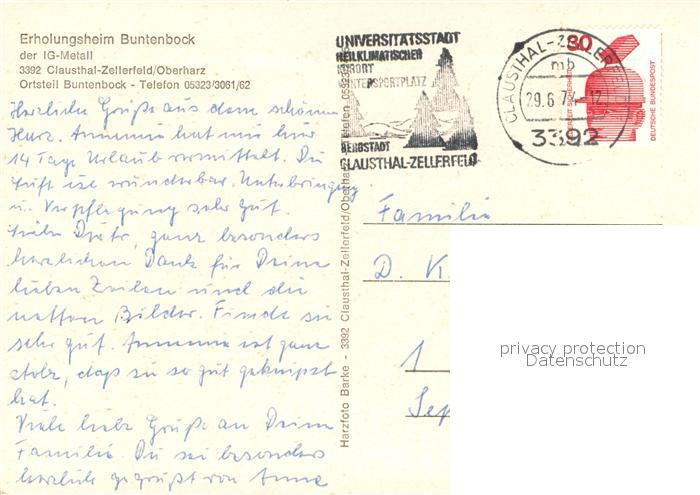 Erholungsheim Buntenbock
der IG-Metall
3392 Clausthal-Zellerfeld/Oberharz
Ortsteil Buntenbock - Telefon 05323/3061/62
Herzliche Grüße aus dem schönen
Harz. hat mir hier
14 Tage Urlaub vermittelt. Die
Luft ist wunderbar. Unterbringung
u. Verpflegung sehr gut.
Liebe ganz besonders
herzlichen Dank für Deine
lieben Zeilen und die
netten Bilder. Finde sie
sehr gut. ist ganz
stolz, daß sie so gut geknipst
hat.
Viele liebe Grüße an Deine
Familie. Du sei besonders
herzlich gegrüßt von Anne
Harzfoto Barke - 3392 Clausthal-Zellerfeld/Oberharz
UNIVERSITÄTSSTADT
HEILKLIMATISCHER
KURORT
WINTERSPORTPLATZ
BERGSTADT
CLAUSTHAL-ZELLERFELD
mb
3392
30
DEUTSCHE BUNDESPOST
Familie
D. K
1
privacy protection
Datenschutz